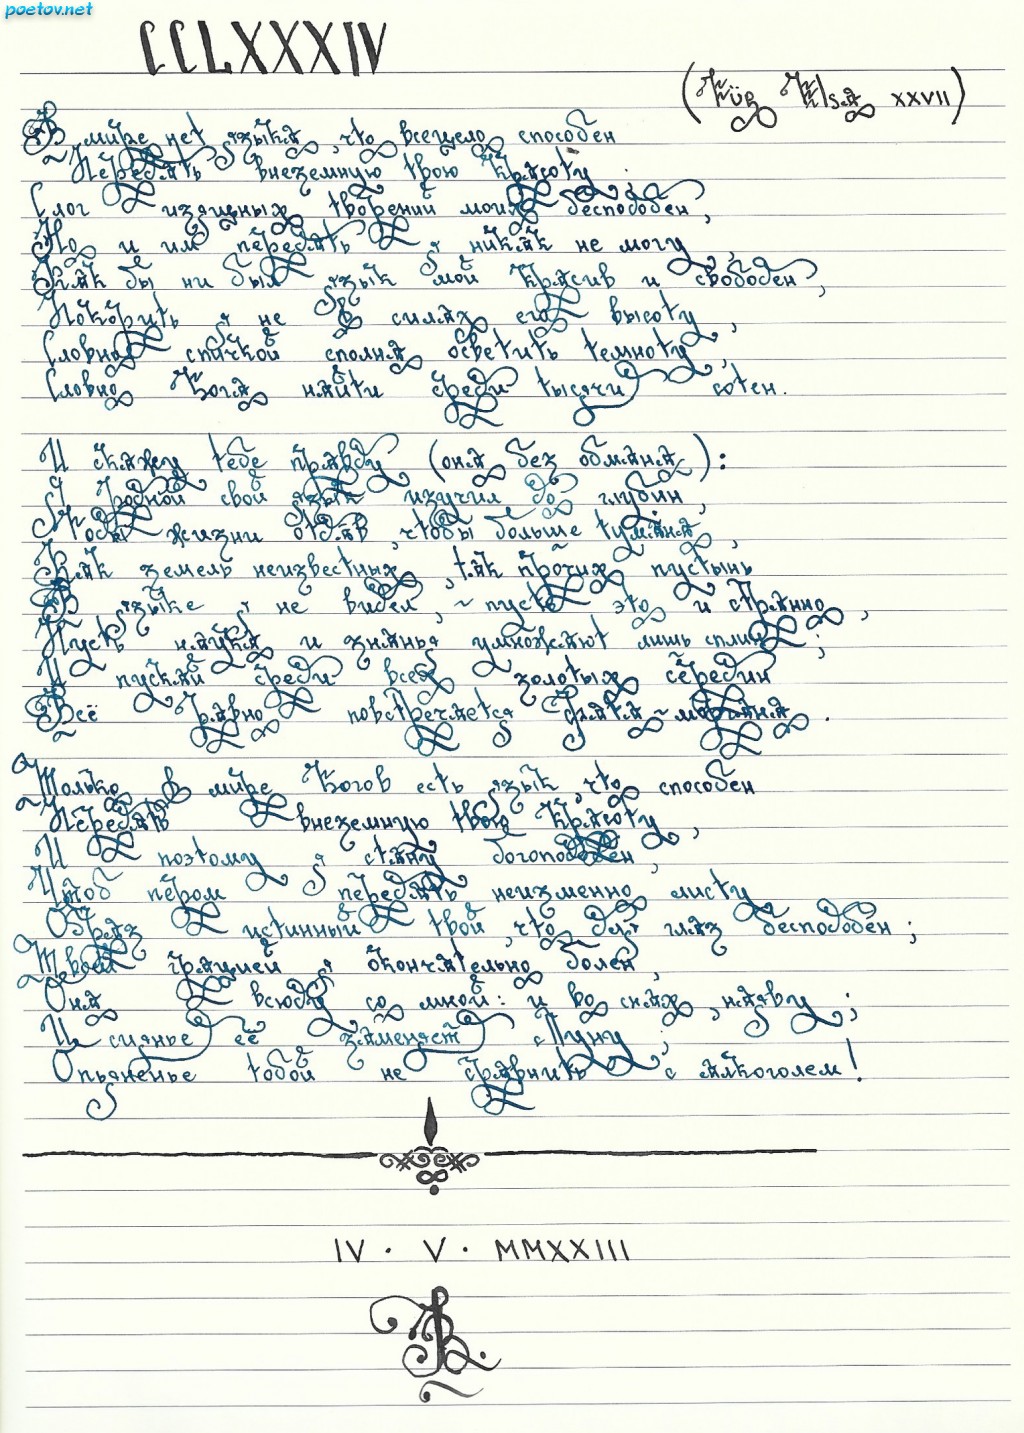 poetov.net
CCLXXXIV
(Für Elsa XXVII)
В мире нет языка, что всецело способен
Передать внеземную твою красоту
Слог изящных творений моих бесподобен,
Но и им передать я никак не могу
Как бы ни был язык мой красив и свободен,
Покорить я не в силах его высоту,
Словно спичкой сполна осветить темноту,
Словно Бога найти среди тысячи сотен.
И скажу тебе правду (она без обмана):
Я родной свой язык изучил до глубин,
Годы жизни отдав, чтобы больше тумана,
Как земель неизвестных, так прочих пустынь
В языке я не видел, ~ пусто это и странно,
Пусть наука и знанья умножают лишь сплин;
И пускай среди всех золотых середин
Всё равно повстречается Фата~моргана.
Только в мире Богов есть язык, что способен
Передать внеземную твою красоту,
И поэтому я стану богоподобен,
Чтоб пером передать неизменно листу
Образ истинный твой, что для глаз бесподобен;
Твоей грацией я окончательно болен,
Она всюду со мной: и во снах, наяву;
И сиянье её заменяет Луну;
Опьяненье тобой не сравнить с алкоголем!
IV · V · MMXXIII